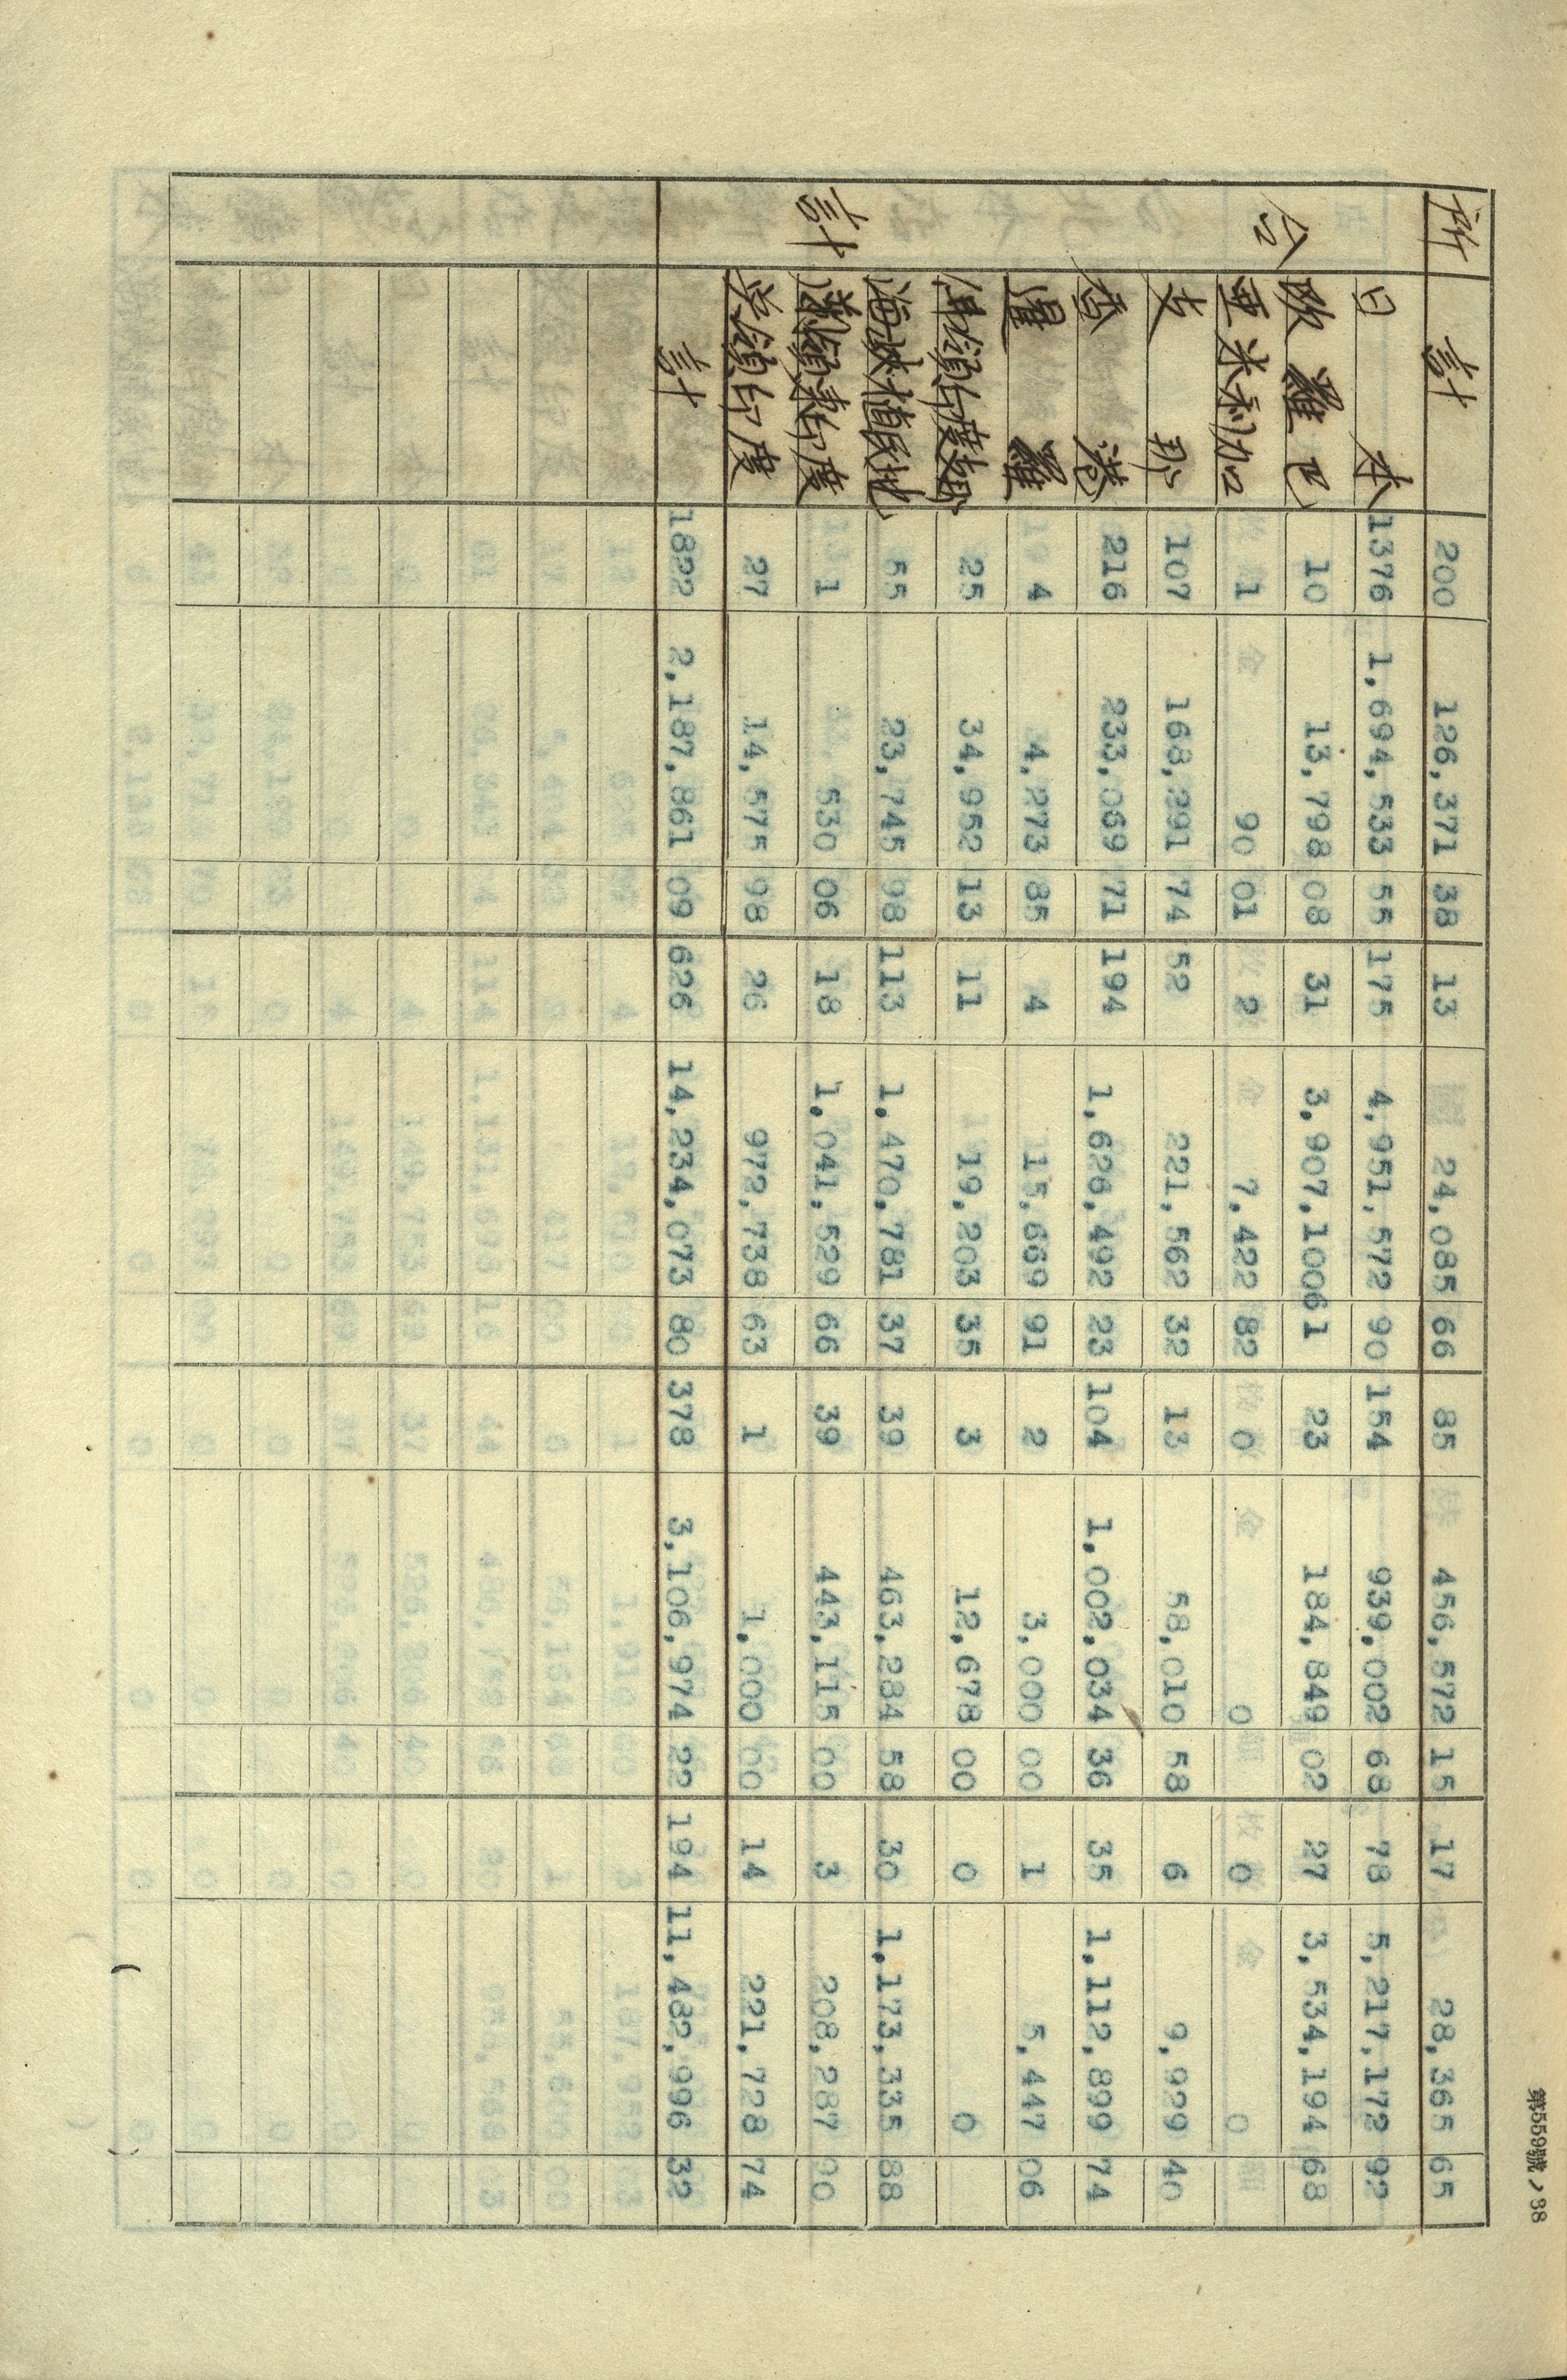 所 計 200 126,371 38 13 24,085 66 85 456,572 15 17 28,365 65
合計
日本 1376 1,694,533 55 175 4,951,572 90 154 939,002 68 78 5,217,172 92
欧羅巴 10 13,798 08 31 3,907,100 61 23 184,849 02 27 3,534,194 68
亜米利加 1 90 01 2 7,422 82 0 0 0 0
支那 107 168,291 74 52 221,562 32 13 58,010 58 6 9,929 40
香港 216 233,069 71 194 1,626,492 23 104 1,002,034 36 35 1,112,899 74
暹羅 4 4,273 85 4 15,669 91 2 3,000 00 1 5,447 06
佛領印度支那 25 34,952 13 11 19,203 35 3 12,678 00 0 0
海峡植民地 55 23,745 98 113 1,470,781 37 39 463,284 58 30 1,173,335 88
蘭領東印度 1 530 06 18 1,041,529 66 39 443,115 00 3 208,287 90
英領印度 27 14,575 98 26 972,738 63 1 1,000 00 14 221,728 74
計 1822 2,187,861 09 626 14,234,073 80 378 3,106,974 22 194 11,482,996 32
第559號ノ38